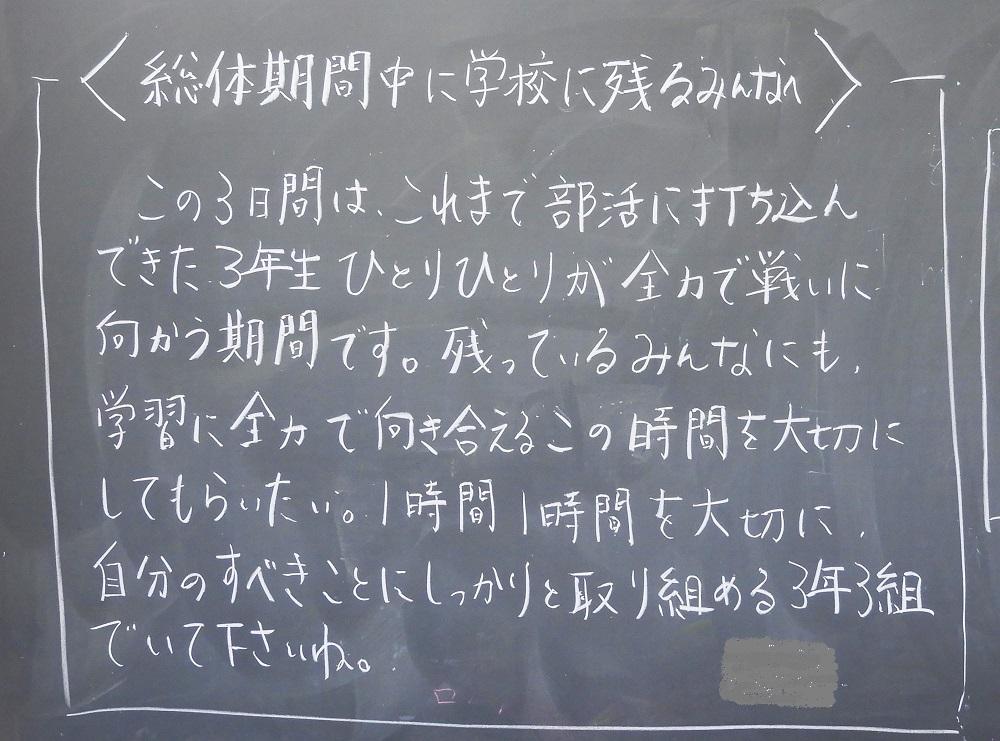 〈総体期間中に学校に残るみんなへ〉
この3日間は、これまで部活に打ち込ん
できた3年生ひとりひとりが全力で戦いに
向かう期間です。残っているみんなにも、
学習に全力で向き合えるこの時間を大切に
してもらいたい。1時間1時間を大切に、
自分のすべきことにしっかりと取り組める3年3組
でいて下さいね。